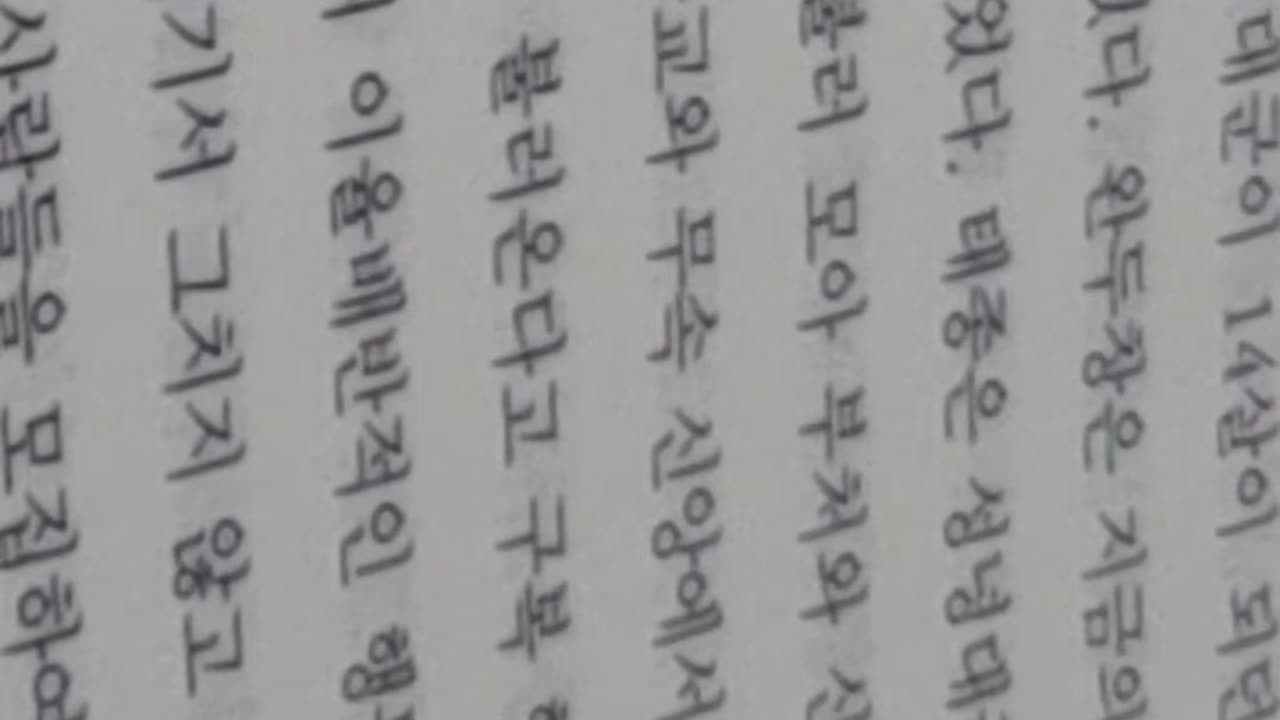 대군이 14살이 되던
다. 완두창은 지금의
었다. 태종은 성녕대
불러 모아 부처와 신
교와 무속 신앙에서
불러온다고 구복
이율배반적인 행
기서 그치지 않고
사람들을 모집하여